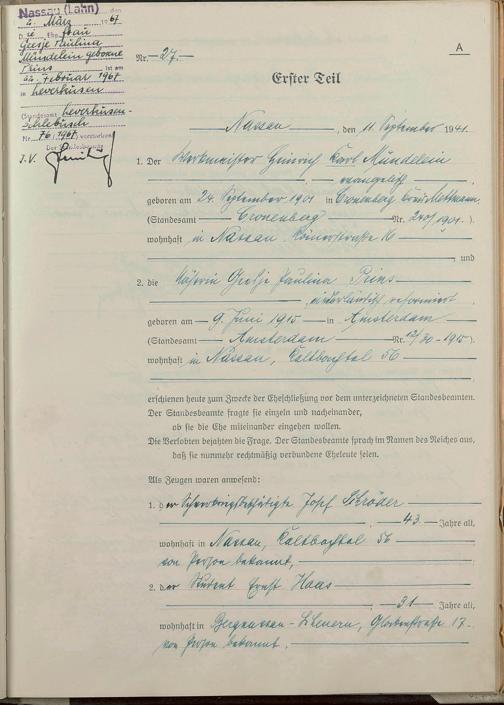 Nassau (Lahn) den
2. März 1967
Die Ehefrau
Geesje Paulina
Mündelein geborne
Prins ist am
22. Februar 1967
in Leverkusen
(Standesamt Leverkusen-
Schlebusch
Nr. 76/1967) verstorben
Der Standesbeamte
J.V.
A
Nr. 27.
Erster Teil
Nassau, den 11. September 1941.
1. Der Werkmeister Heinrich Karl Mündelein
evangelisch
geboren am 24. September 1901 in Cronenberg Kreis Mettmann
(Standesamt Cronenberg Nr. 240/1901.)
wohnhaft in Nassau, Römerstraße 16
, und
2. die Geesje Paulina Prins
niederländisch reformiert
geboren am 9. Juni 1915 in Amsterdam
(Standesamt Amsterdam Nr. 1915)
wohnhaft in Nassau, Kaltbachtal 56
erschienen heute zum Zwecke der Eheschließung vor dem unterzeichneten Standesbeamten.
Der Standesbeamte fragte sie einzeln und nacheinander,
ob sie die Ehe miteinander eingehen wollen.
Die Verlobten bejahten die Frage. Der Standesbeamte sprach im Namen des Reiches aus,
daß sie nunmehr rechtmäßig verbundene Eheleute seien.
Als Zeugen waren anwesend:
1. der Josef Schröder
, 43 Jahre alt,
wohnhaft in Nassau, Kaltbachtal 56
von Person bekannt,
2. der Student Ernst Haas
, 31 Jahre alt,
wohnhaft in Bergnassau-Scheuern, 17.
von Person bekannt.